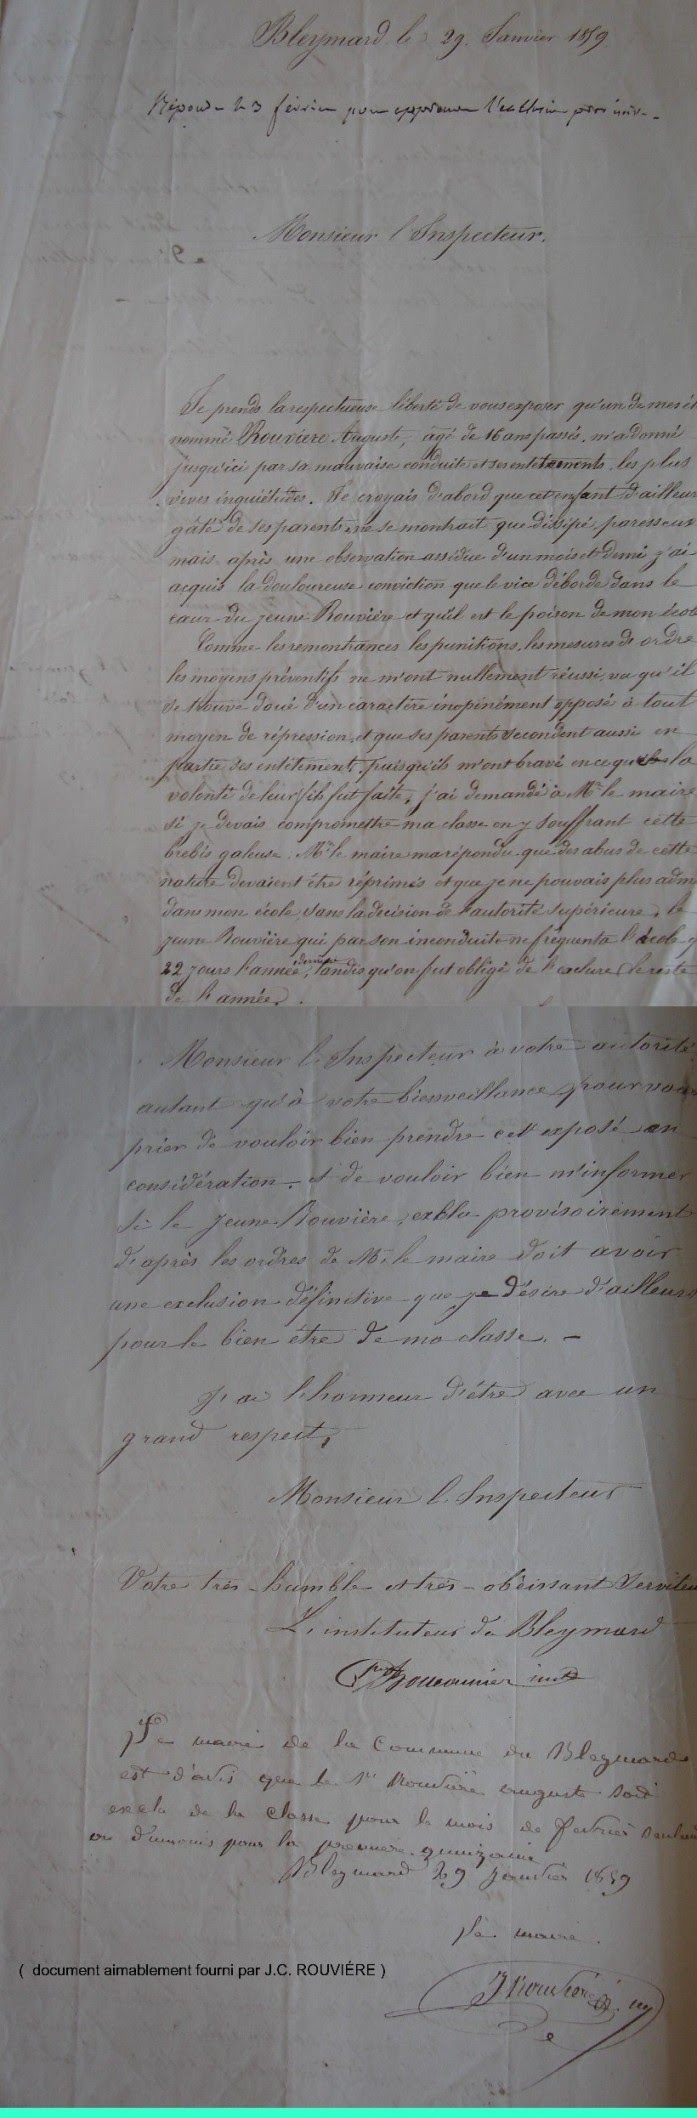 Bleymard le 29 Janvier 1859.
Répondu le 3 février pour approuver l'exclusion
Monsieur l'Inspecteur.
Je prends la respectueuse liberté de vous exposer qu'un de mes
nommé Rouvière Auguste, agé de 16 ans passés, m'a donné
jusqu'ici par sa mauvaise conduite et ses entêtements, les plus
vives inquiétudes. Je croyais d'abord que cet enfant d'ailleurs
gâté de ses parents, ne se montrait que dissipé, paresseux
mais après une observation assidue d'un mois et demi j'ai
acquis la douloureuse conviction que le vice déborde dans le
cœur du jeune Rouvière et qu'il est le poison de mon école
Comme les remontrances les punitions, les mesures d'ordre
les moyens préventifs ne m'ont nullement réussi, vu qu'il
se trouve doué d'un caractère inopinément opposé à tout
moyen de répression, et que ses parents secondent aussi en
partie ses entêtement, puisqu'ils m'ont bravé en ce que la
volonté de leur fils fut faite, j'ai demandé à Mr le maire
si je devais compromettre ma classe en y souffrant cette
brebis galeuse. Mr le maire m'a répondu que des abus de cette
nature devaient être réprimés et que je ne pouvais plus adm
dans mon école, sans la décision de l'autorité supérieure, le
jeune Rouvière qui par son inconduite ne fréquenta l'école q
22 jours l'année dernière, tandis qu'on fut obligé de l'exclure le reste
de l'année.
Monsieur l'Inspecteur à votre autorité
autant qu'à votre bienveillance pour vous
prier de vouloir bien prendre cet exposé en
considération, et de vouloir bien m'informer
si le jeune Rouvière, exclu provisoirement
d'après les ordres de Mr le maire doit avoir
une exclusion définitive que je désire d'ailleurs
pour le bien être de ma classe. -
J'ai l'honneur d'être avec un
grand respect,
Monsieur l'Inspecteur
Votre très-humble et très-obéissant Serviteu
L'instituteur du Bleymard
Le maire de la Commune du Bleymard
est d'avis que le Sr Rouvière auguste soit
exclu de la classe pour le mois de février seulem
ou d'umoins pour la premiere quinzaine
Bleymard 29 Janvier 1859
Le maire.
Rouvière
( document aimablement fourni par J.C. ROUVIÉRE )